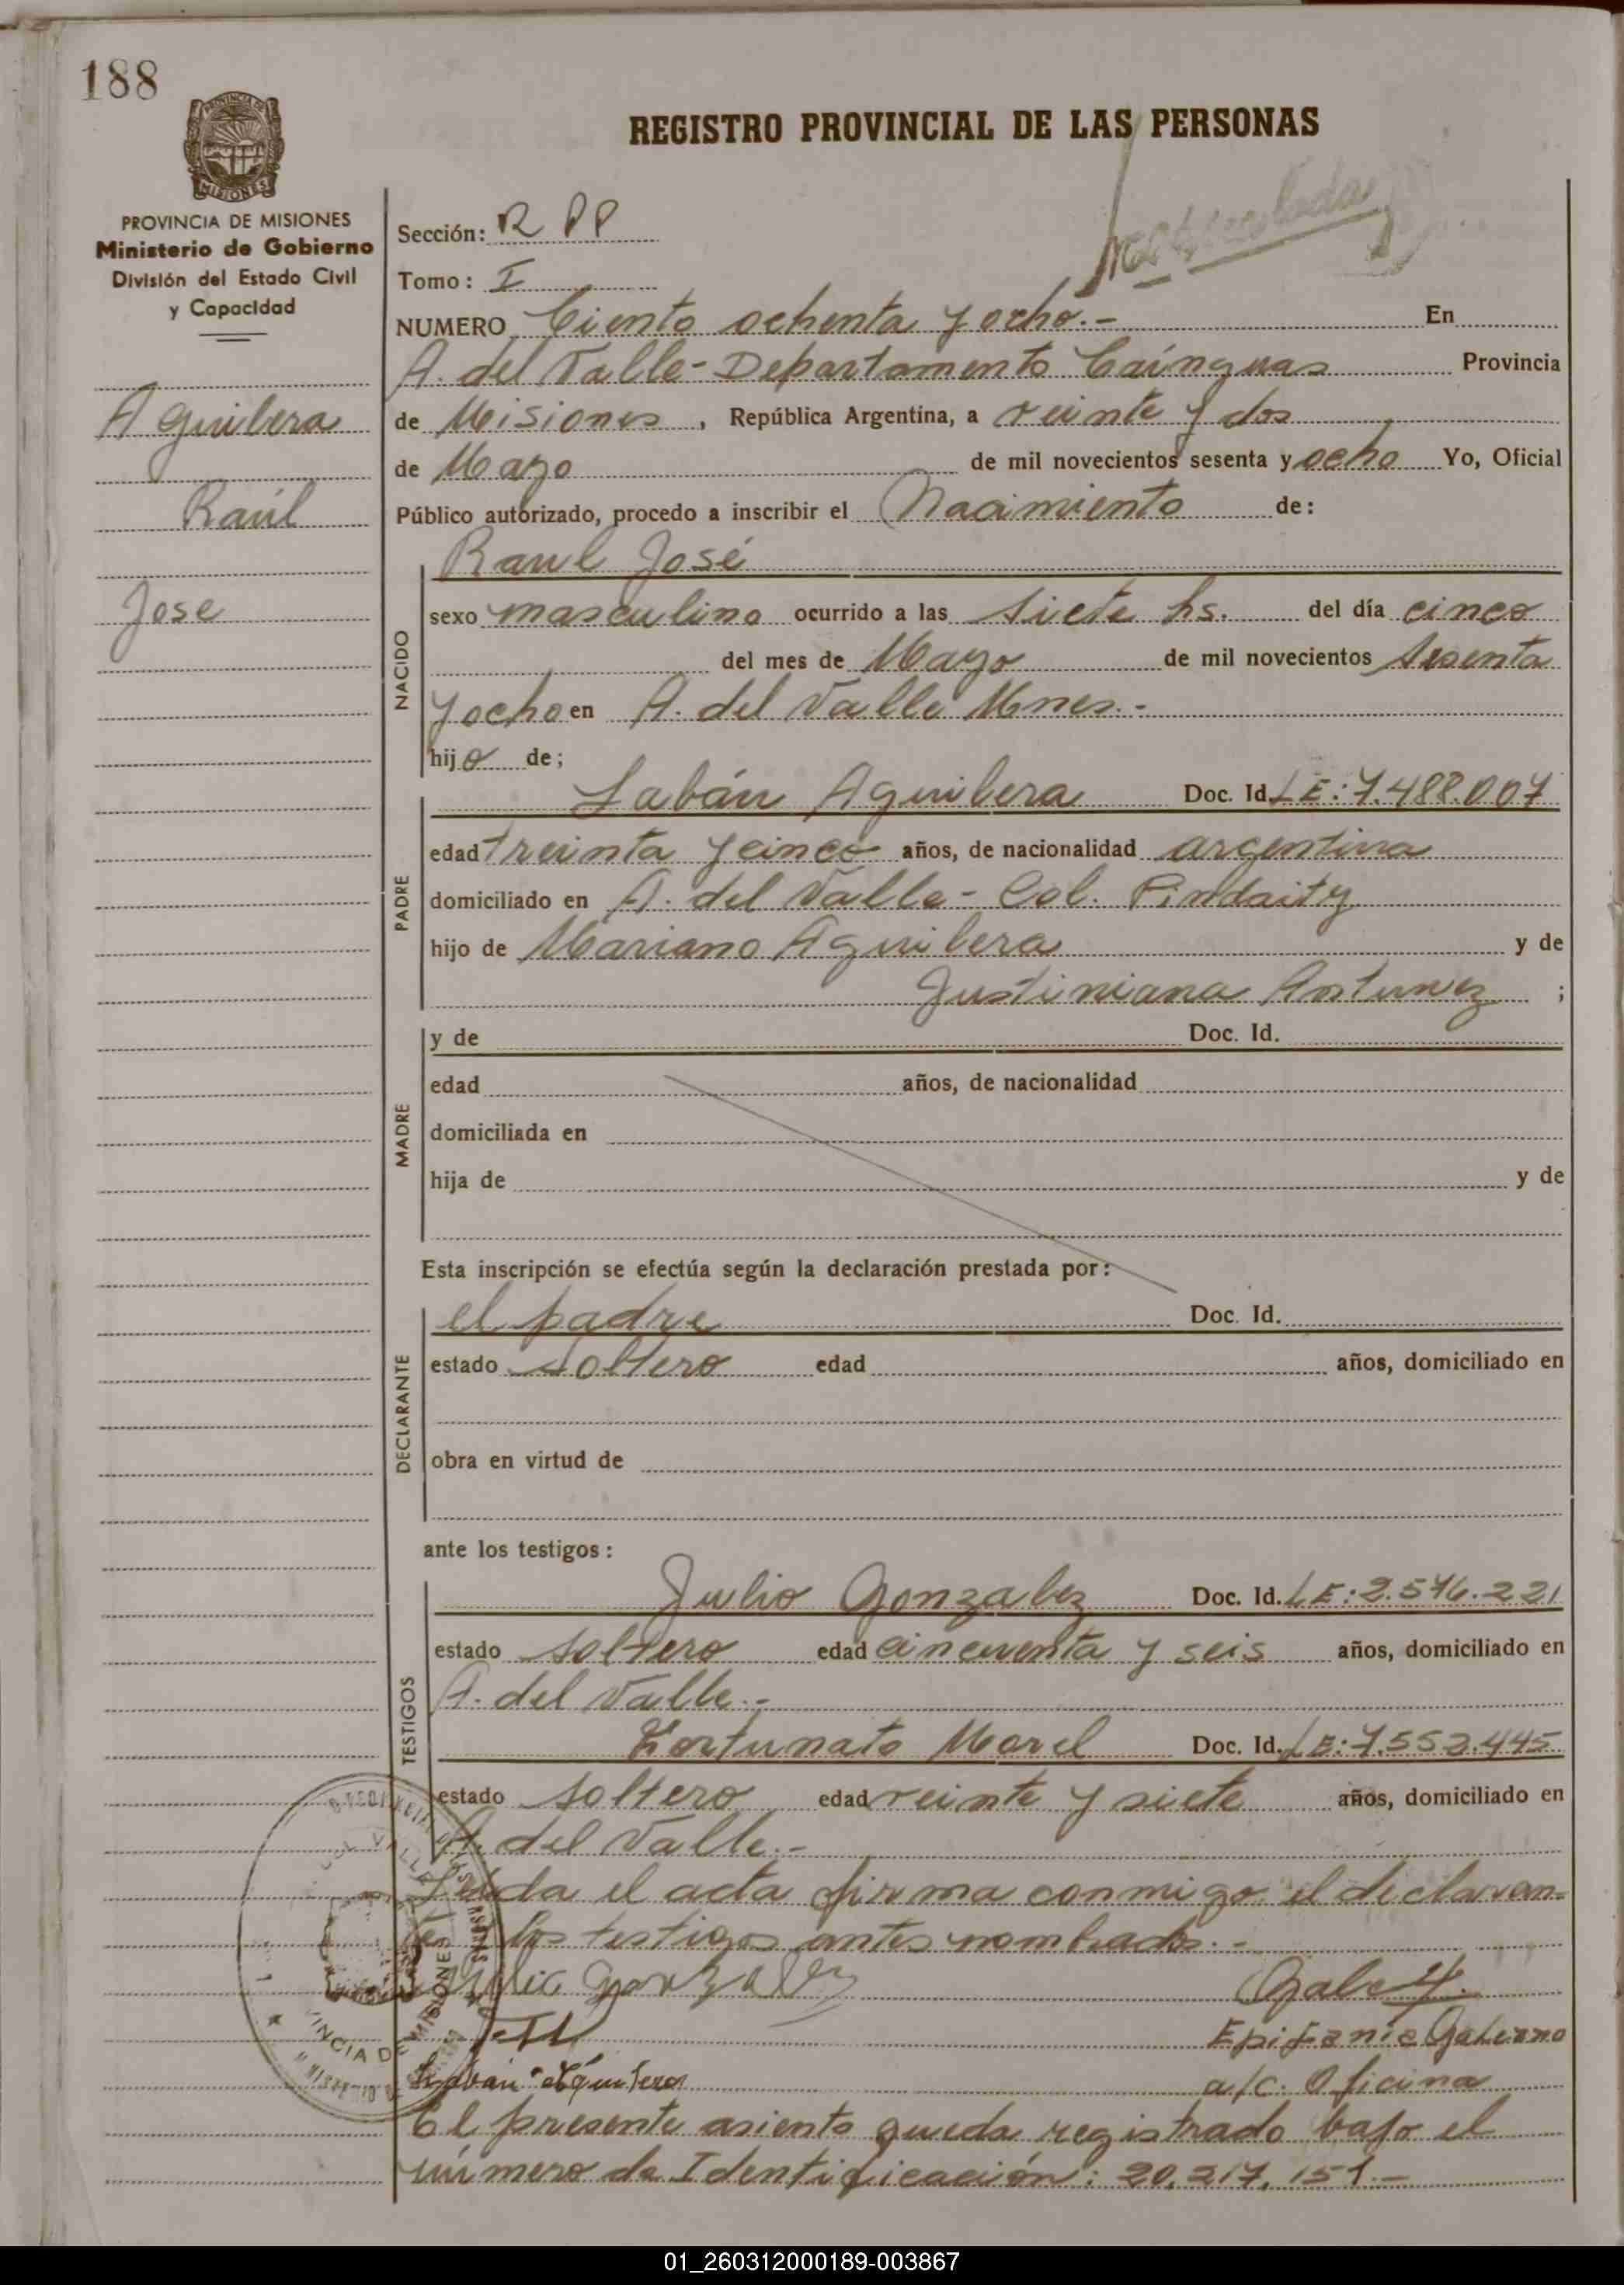 188
REGISTRO PROVINCIAL DE LAS PERSONAS
PROVINCIA DE MISIONES
Ministerio de Gobierno
División del Estado Civil
y Capacidad
Aguilera
Raúl
Jose
Sección: R PP
Tomo: I
NUMERO Ciento ochenta y ocho.- En
A. del Valle - Departamento Cainguas Provincia
de Misiones, República Argentina, a veinte y dos
de Mayo de mil novecientos sesenta y ocho Yo, Oficial
Público autorizado, procedo a inscribir el Nacimiento de:
NACIDO
Raul José
sexo masculino ocurrido a las siete hs. del día cinco
del mes de Mayo de mil novecientos sesenta
y ocho en A. del Valle Mnes.-
hijo de;
PADRE
Labán Aguilera Doc. Id. LE: 7.488.007
edad treinta y cinco años, de nacionalidad argentina
domiciliado en A. del Valle - Col. Pindaity
hijo de Mariano Aguilera y de
Justiniana Antunez ;
MADRE
y de Doc. Id.
edad años, de nacionalidad
domiciliada en
hija de y de
Esta inscripción se efectúa según la declaración prestada por:
DECLARANTE
el padre Doc. Id.
estado soltero edad años, domiciliado en
obra en virtud de
ante los testigos:
TESTIGOS
Julio Gonzalez Doc. Id. LE: 2.576.221
estado soltero edad cincuenta y seis años, domiciliado en
A. del Valle.-
Fortunato Morel Doc. Id. LE: 7.552.445
estado soltero edad veinte y siete años, domiciliado en
A. del Valle.-
Leida el acta firma conmigo el declaran-
te los testigos antes nombrados.-
Julio Gonzalez
Epifanio Galeano
Labán Aguilera
a/c. Oficina
El presente asiento queda registrado bajo el
número de Identificación: 20.217.151.-
01_260312000189-003867